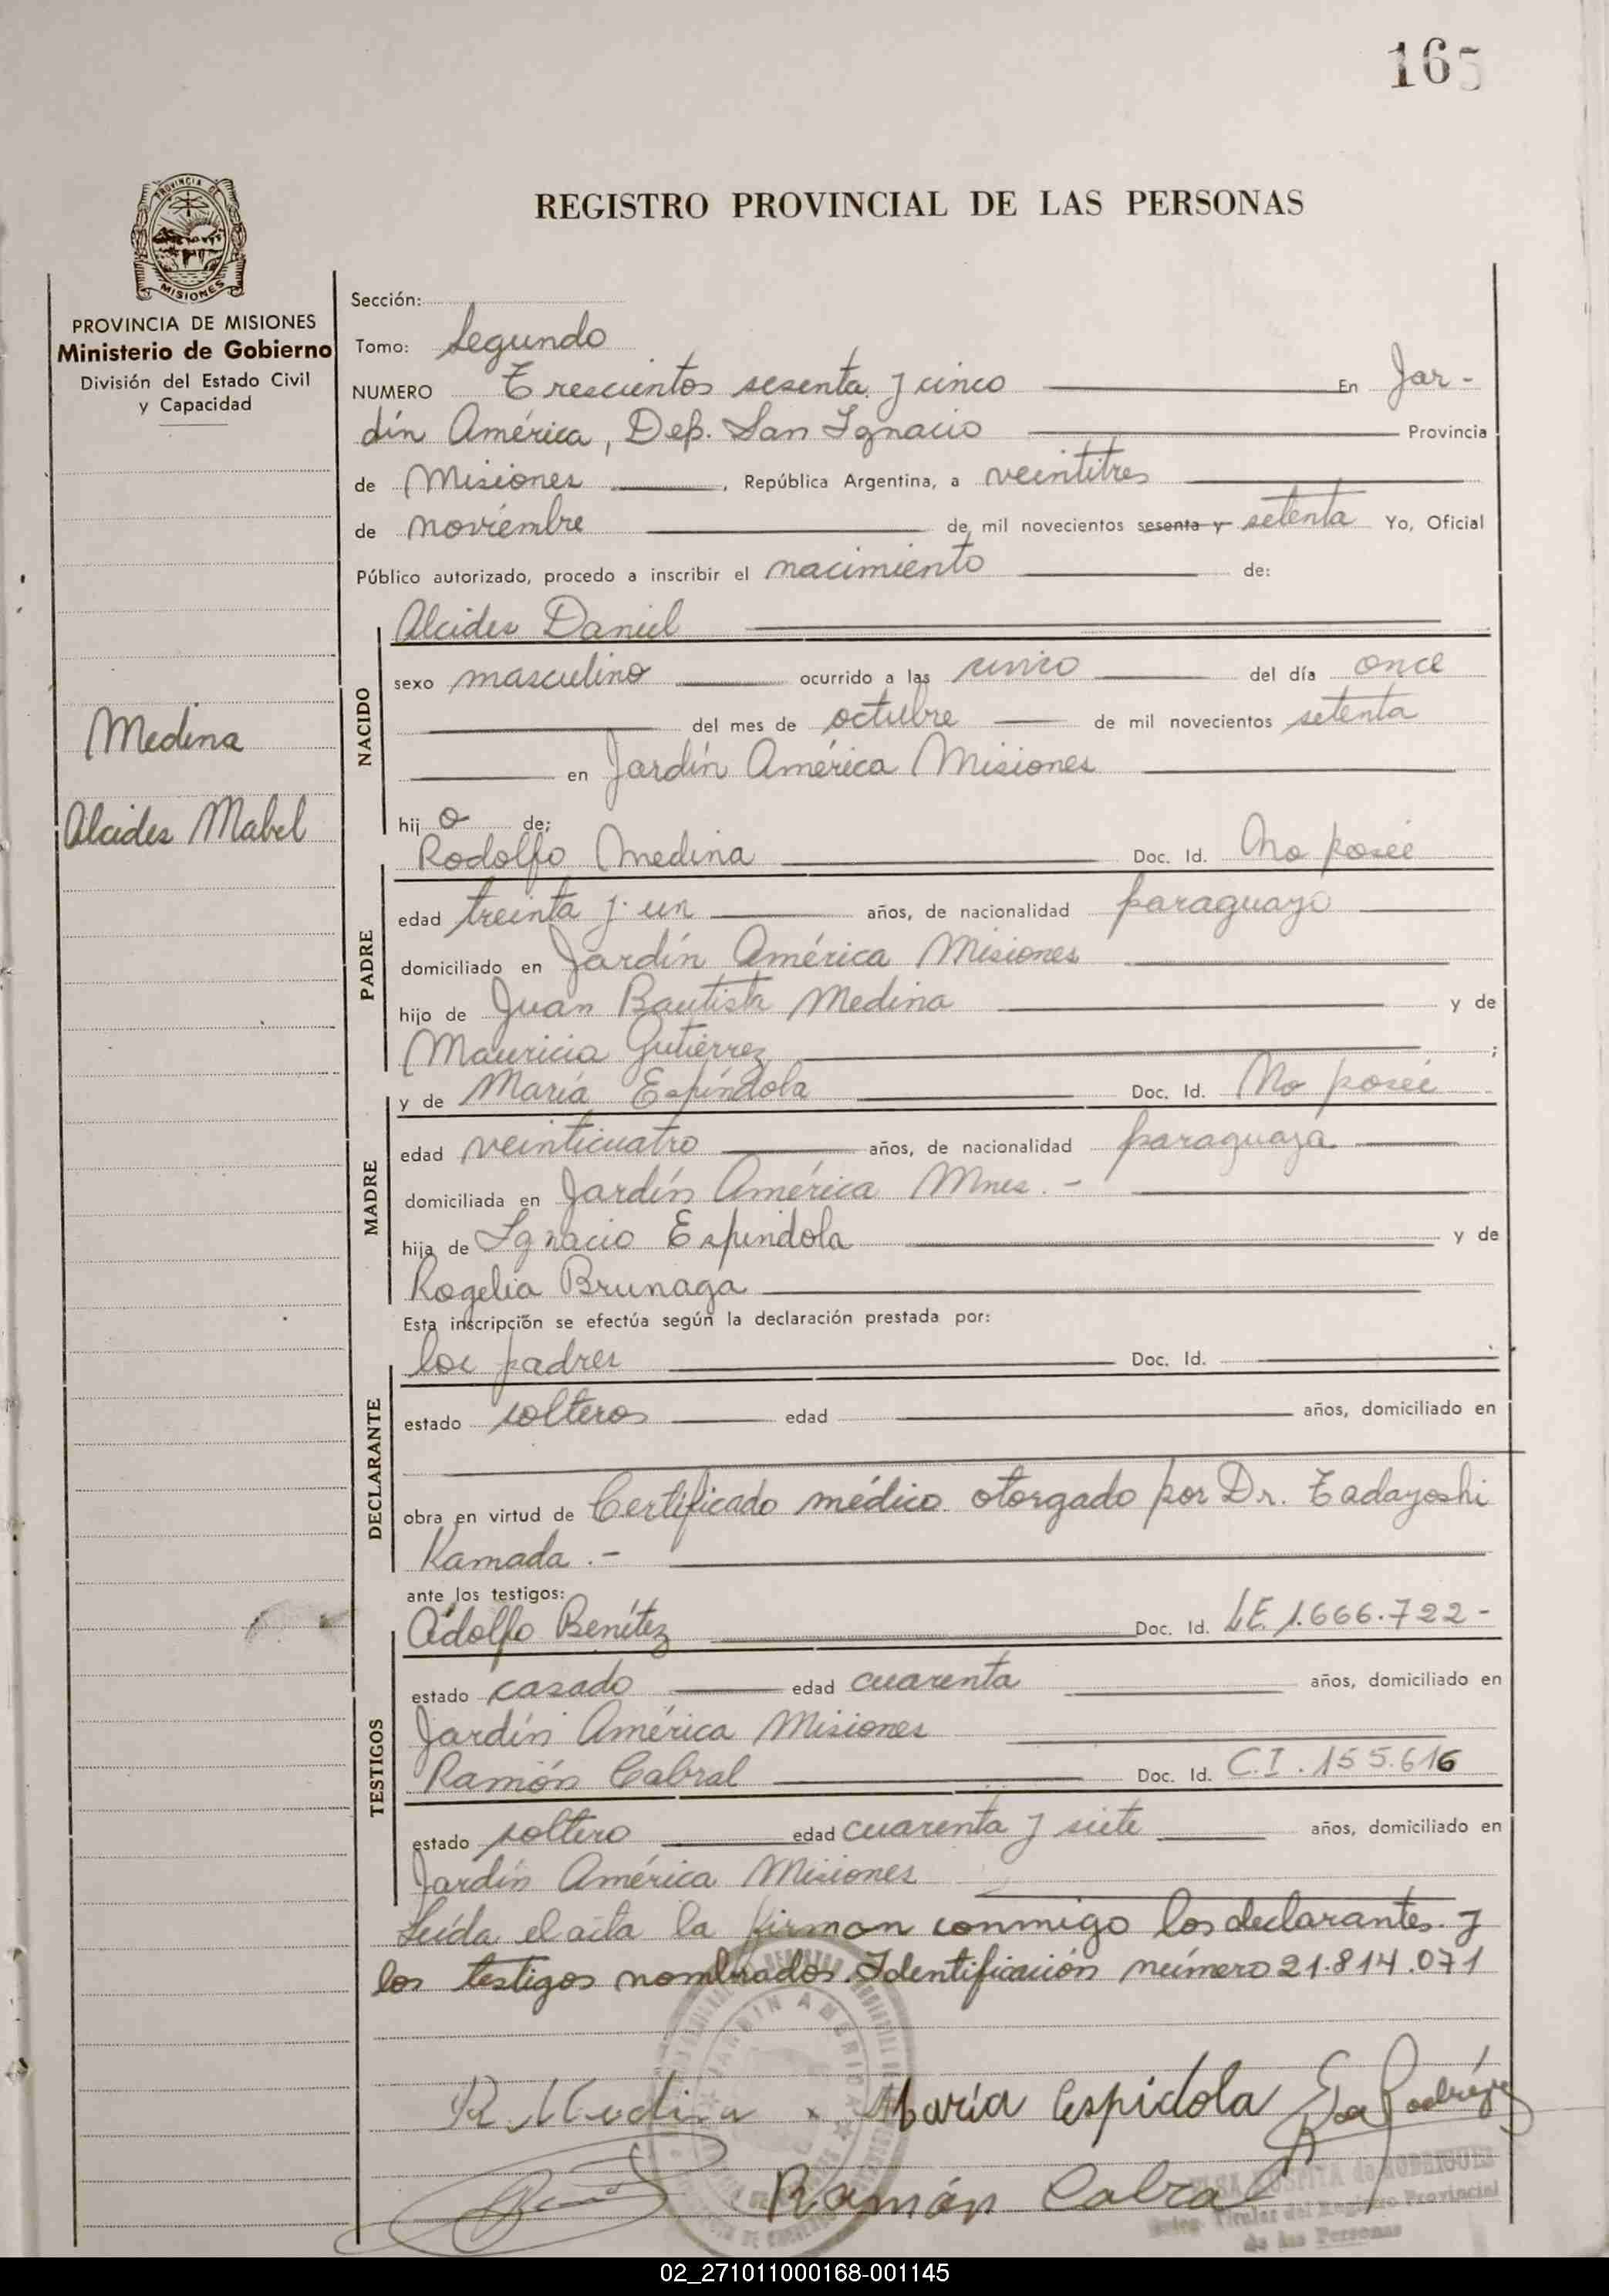 165
PROVINCIA DE
MISIONES
REGISTRO PROVINCIAL DE LAS PERSONAS
PROVINCIA DE MISIONES
Ministerio de Gobierno
División del Estado Civil
y Capacidad
Medina
Alcides Mabel
Sección:
Tomo: Segundo
NUMERO Trescientos sesenta y cinco En Jar-
dín América, Dep. San Ignacio Provincia
de Misiones, República Argentina, a veintitres
de noviembre de mil novecientos sesenta y setenta Yo, Oficial
Público autorizado, procedo a inscribir el nacimiento de:
NACIDO
Alcides Daniel
sexo masculino ocurrido a las cinco del día once
del mes de octubre de mil novecientos setenta
en Jardín América Misiones
hijo de:
PADRE
Rodolfo Medina Doc. Id. No posee
edad treinta y un años, de nacionalidad paraguayo
domiciliado en Jardín América Misiones
hijo de Juan Bautista Medina y de
Mauricia Gutiérrez ;
MADRE
y de María Espíndola Doc. Id. No posee
edad veinticuatro años, de nacionalidad paraguaya
domiciliada en Jardín América Mnes. -
hija de Ignacio Espíndola y de
Rogelia Brunaga
Esta inscripción se efectúa según la declaración prestada por:
DECLARANTE
los padres Doc. Id.
estado solteros edad años, domiciliado en
obra en virtud de Certificado médico otorgado por Dr. Tadayoshi
Kamada .-
ante los testigos:
TESTIGOS
Adolfo Benítez Doc. Id. LE. 1.666.722-
estado casado edad cuarenta años, domiciliado en
Jardín América Misiones
Ramón Cabral Doc. Id. C.I. 155.616
estado soltero edad cuarenta y siete años, domiciliado en
Jardín América Misiones
Leída el acta la firman conmigo los declarantes y
los testigos nombrados. Identificación número 21.814.071
JARDIN AMERICA
R. Medina María Espidola
Ramón Cabral
ELSA de RODRIGUEZ
Titular del Registro Provincial
de las Personas
02_271011000168-001145